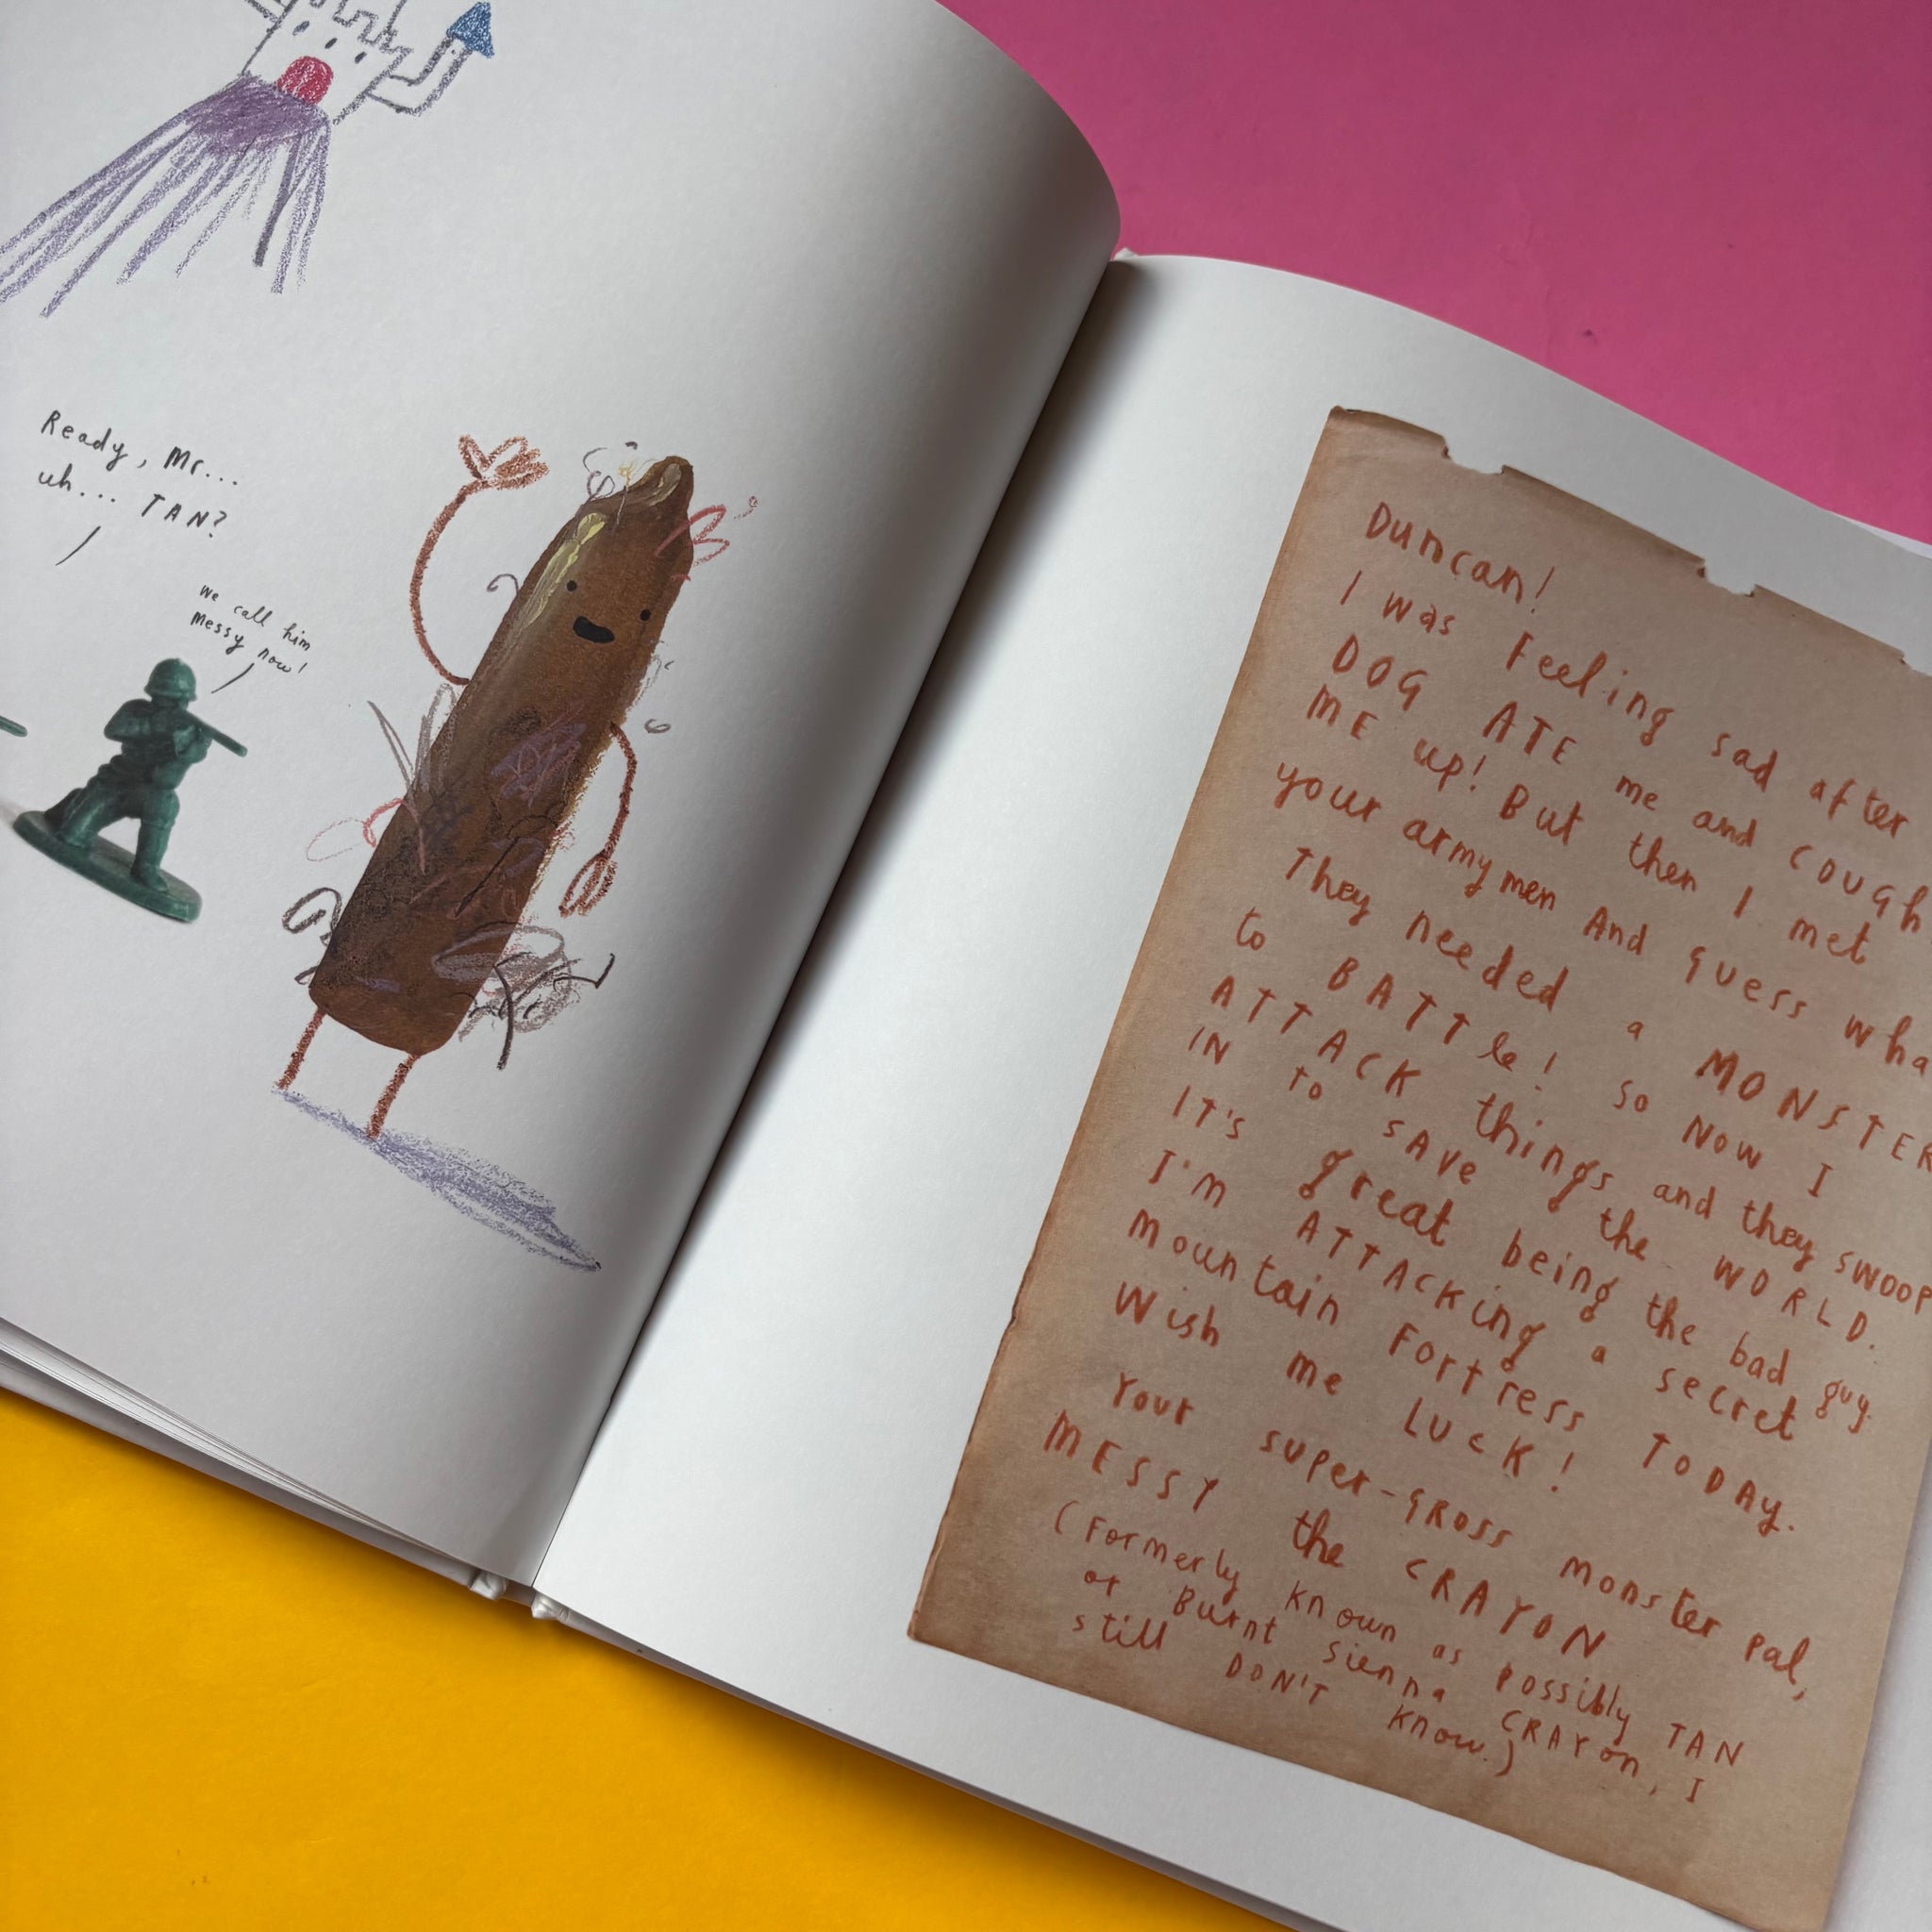 Ready, Mr...
uh... TAN?
We call him
messy now!
Duncan!
I was Feeling sad after
DOG ATE me and COUGH
ME up! But then I met
your army men And guess wha
They needed a MONSTER
to BATTle! So Now I
ATTACK things and they SWOOP
IN to SAve the WORLD.
IT's great being the bad guy.
I'm ATTACKing a secret
mountain Fortress TODAY.
Wish me LUCK!
Your super-GRoss monster pal,
MESSY the CRAYON
(Formerly known as possibly TAN
or Burnt Sienna CRAYon, I
still DON'T know.)